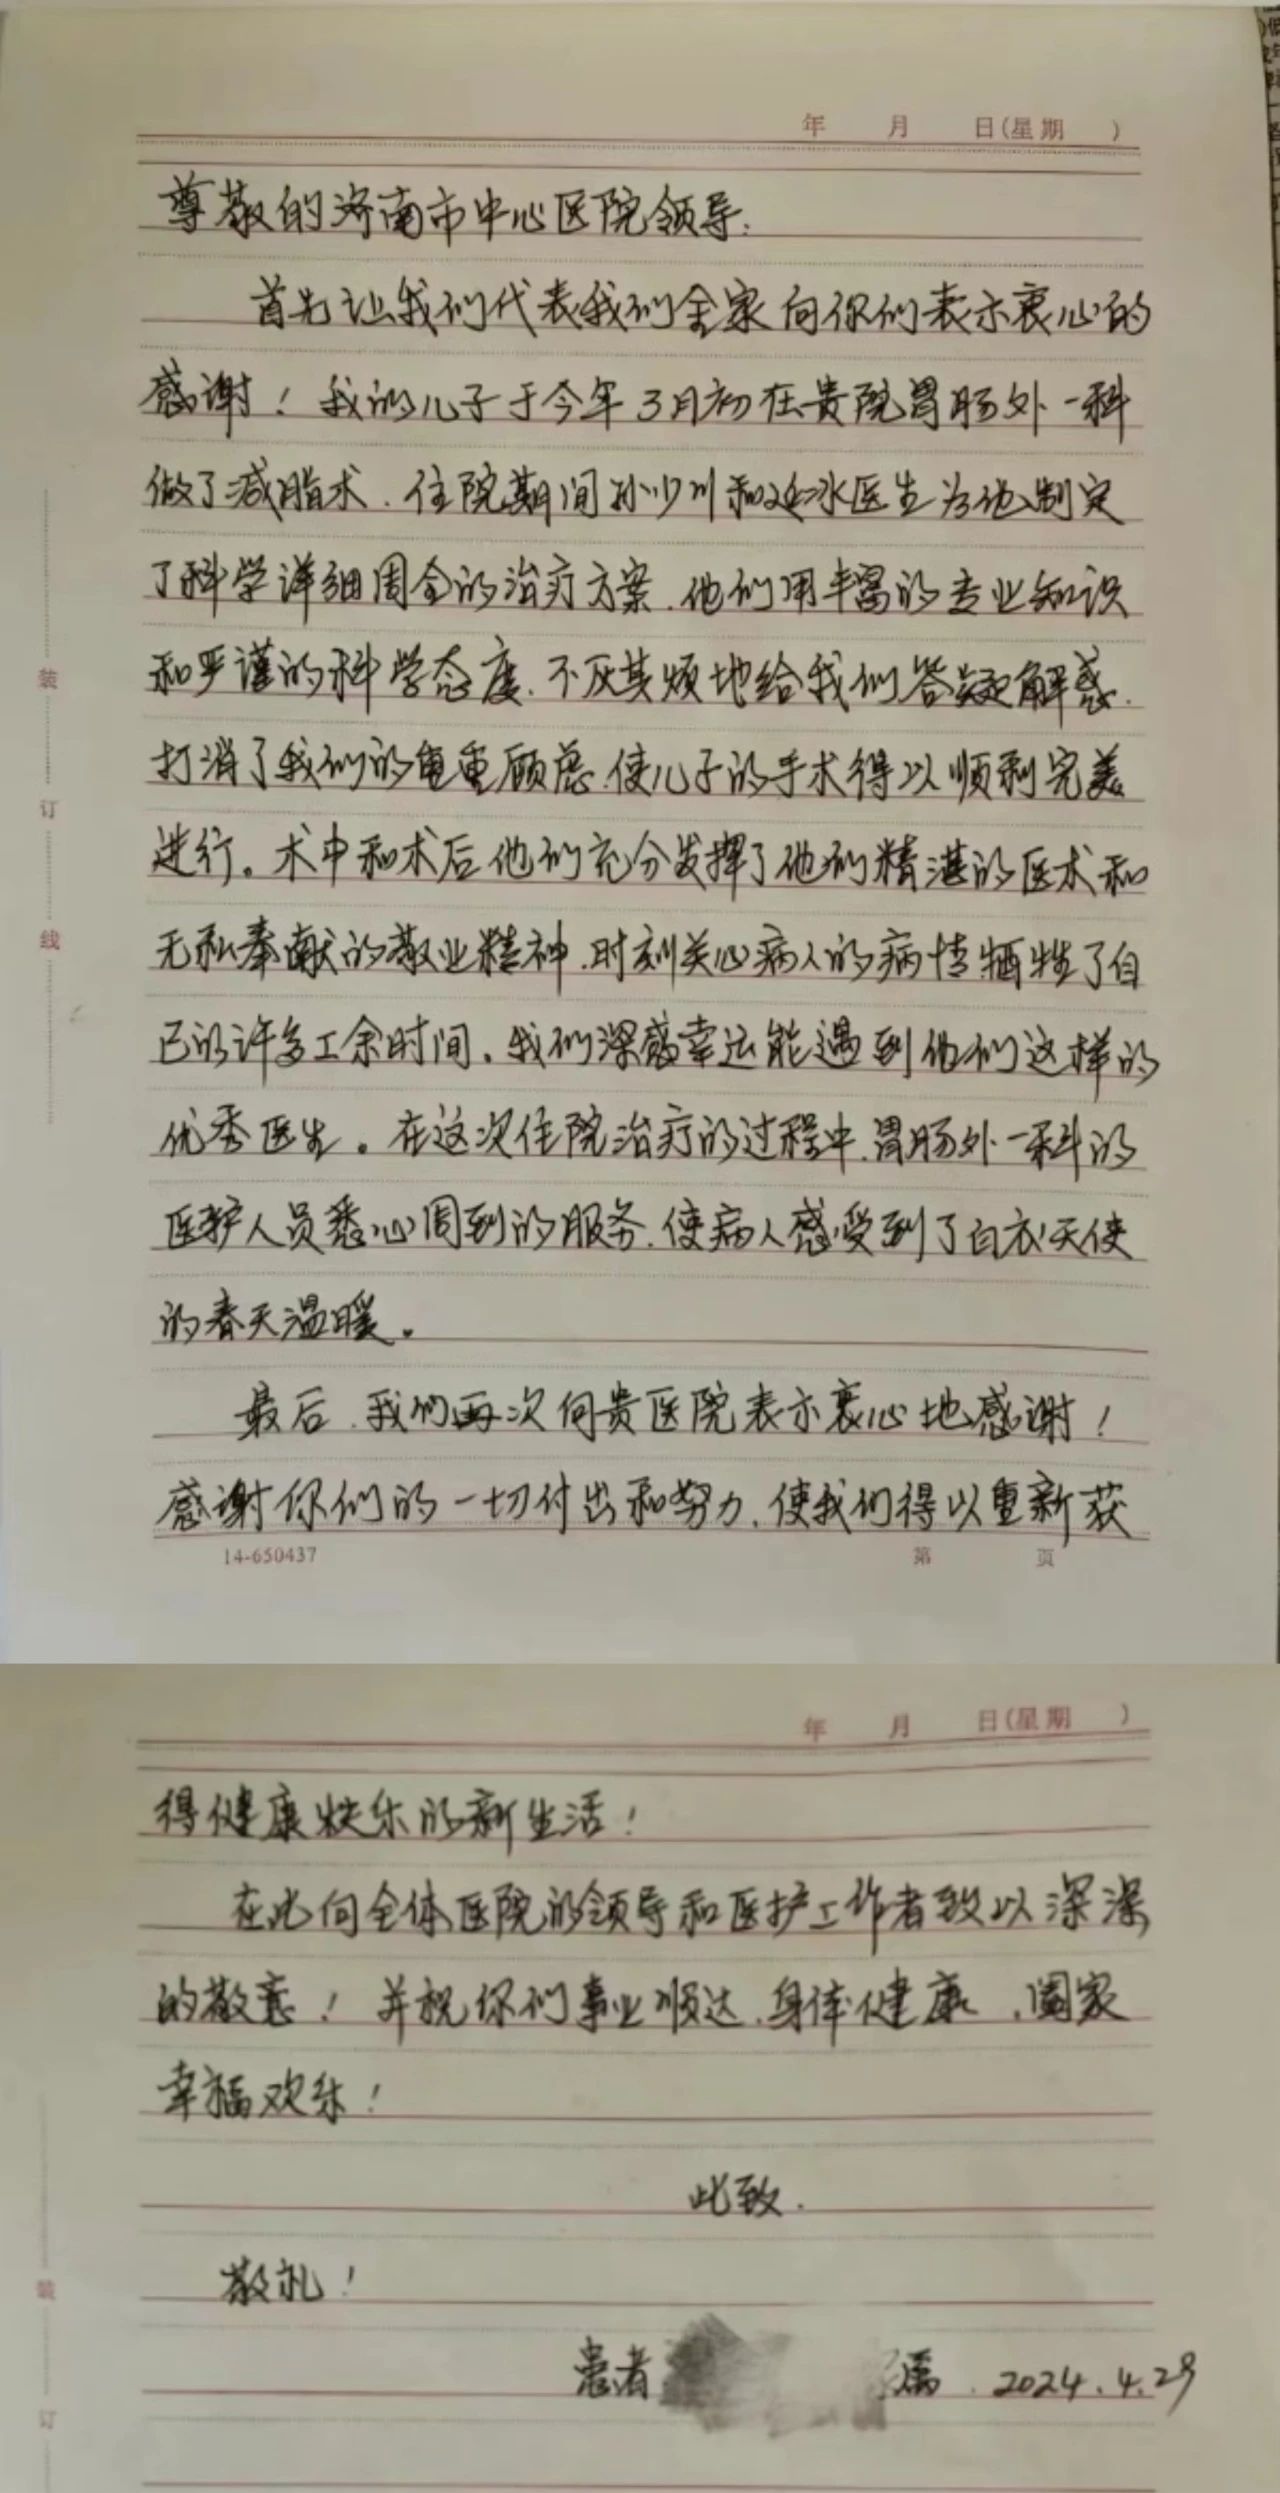 年 月 日(星期 )
尊敬的济南市中心医院领导:
首先让我们代表我们全家向你们表示衷心的
感谢！我的儿子于今年3月初在贵院胃肠外一科
做了减脂术.住院期间孙少川和延冰医生为他制定
了科学详细周全的治疗方案.他们用丰富的专业知识
和严谨的科学态度.不厌其烦地给我们答疑解惑.
打消了我们的重重顾虑.使儿子的手术得以顺利完美
进行。术中和术后他们充分发挥了他们精湛的医术和
无私奉献的敬业精神.时刻关心病人的病情牺牲了自
己的许多工余时间。我们深感幸运能遇到他们这样的
优秀医生。在这次住院治疗的过程中.胃肠外一科的
医护人员悉心周到的服务.使病人感受到了白衣天使
的春天温暖。
最后.我们再次向贵医院表示衷心地感谢！
感谢你们的一切付出和努力.使我们得以重新获
14-650437 第 页
装
订
线
年 月 日(星期 )
得健康快乐的新生活！
在此向全体医院的领导和医护工作者致以深深
的敬意！并祝你们事业顺达.身体健康.阖家
幸福欢乐！
此致.
敬礼！
患者 属.2024.4.29
装
订